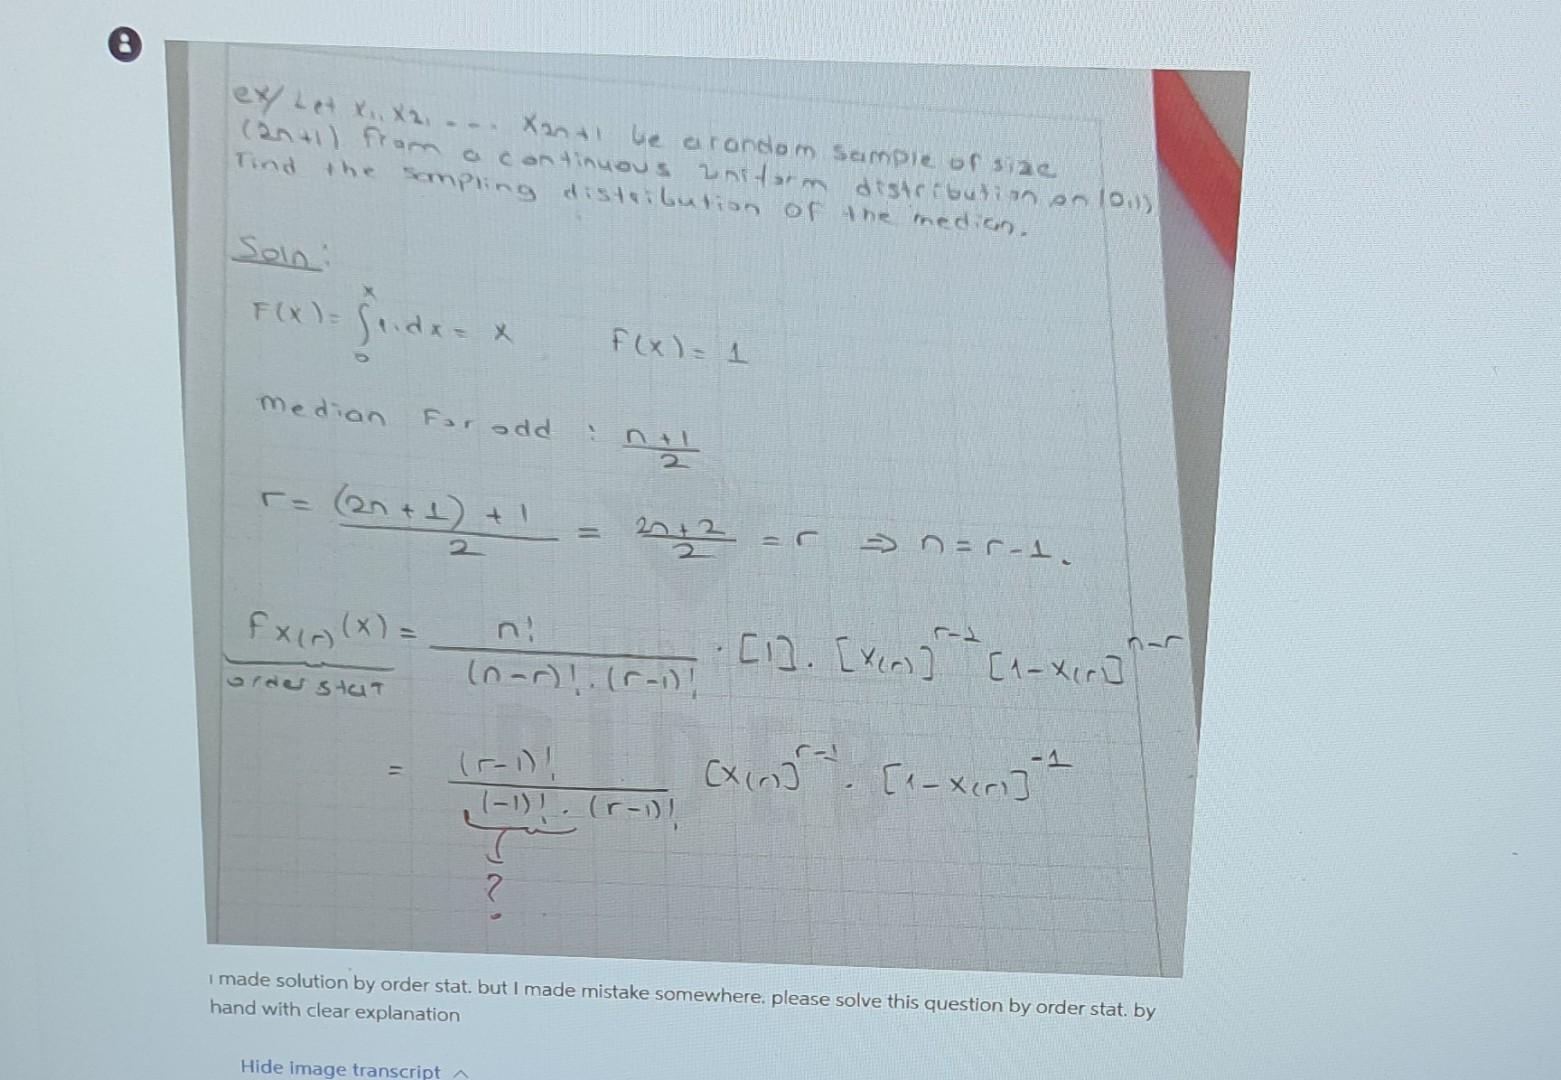 ex/ Let x₁, x2, ---. X2n+1 be a random sample of size
(2n+1) from a continuous uniform distribution on (0,1)
Find the sampling distribution of the median.
Soln:
F(x) = ∫₀ˣ 1.dx = x f(x) = 1
median For odd : (n+1)/2
r = ((2n+1)+1)/2 = (2n+2)/2 = r ⇒ n = r-1.
f x(r) (x) = n! / ((n-r)! . (r-1)!) . [1]. [x(r)]^(r-1) [1-x(r)]^(n-r)
order stat
= (r-1)! / ((-1)! . (r-1)!) [x(r)]^(r-1) . [1-x(r)]^(-1)
?
I made solution by order stat. but I made mistake somewhere. please solve this question by order stat. by
hand with clear explanation
Hide image transcript